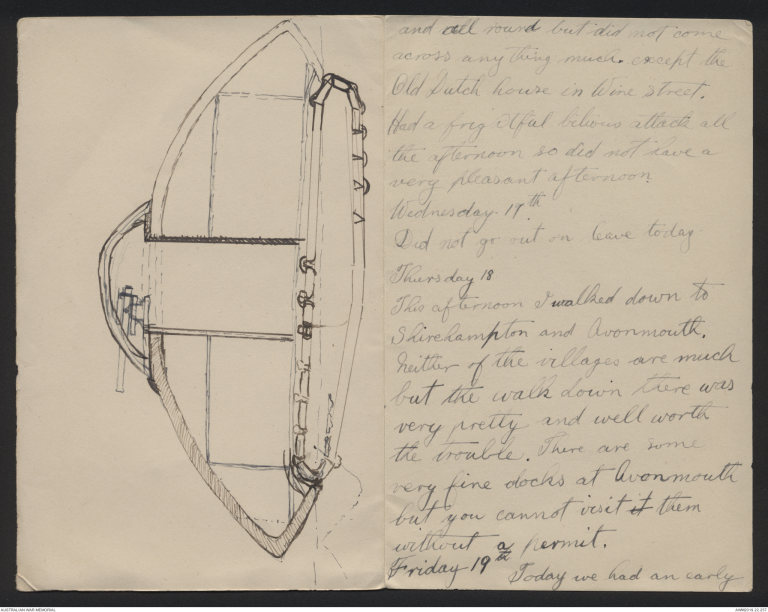 and all round but did not come
across anything much. except the
Old Dutch house in Wine street.
Had a frightful bilious attack all
the afternoon so did not have a
very pleasant afternoon.
Wednesday. 17th.
Did not go out on leave today
Thursday 18
This afternoon I walked down to
Shirehampton and Avonmouth.
Neither of the villages are much
but the walk down there was
very pretty and well worth
the trouble. There are some
very fine docks at Avonmouth
but you cannot visit it them
without a permit.
Friday 19th
Today we had an early
AUSTRALIAN WAR MEMORIAL